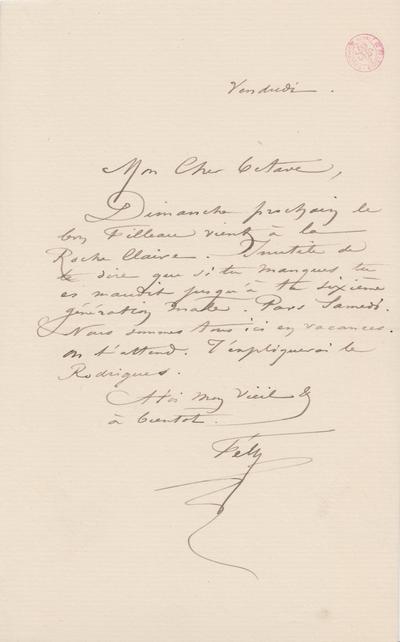 Vendredi.
Mon Cher Octave,
Dimanche prochain le
bon Filleau vient à la
Roche Claire. Inutile de
te dire que si tu manques, tu
es maudit jusqu'à ta sixième
génération mâle. Pars Samedi.
Nous sommes tous ici en vacances.
on t'attend. T'expliquerai le
Rodrigues.
A toi mon vieil &
à bientot.
Fély